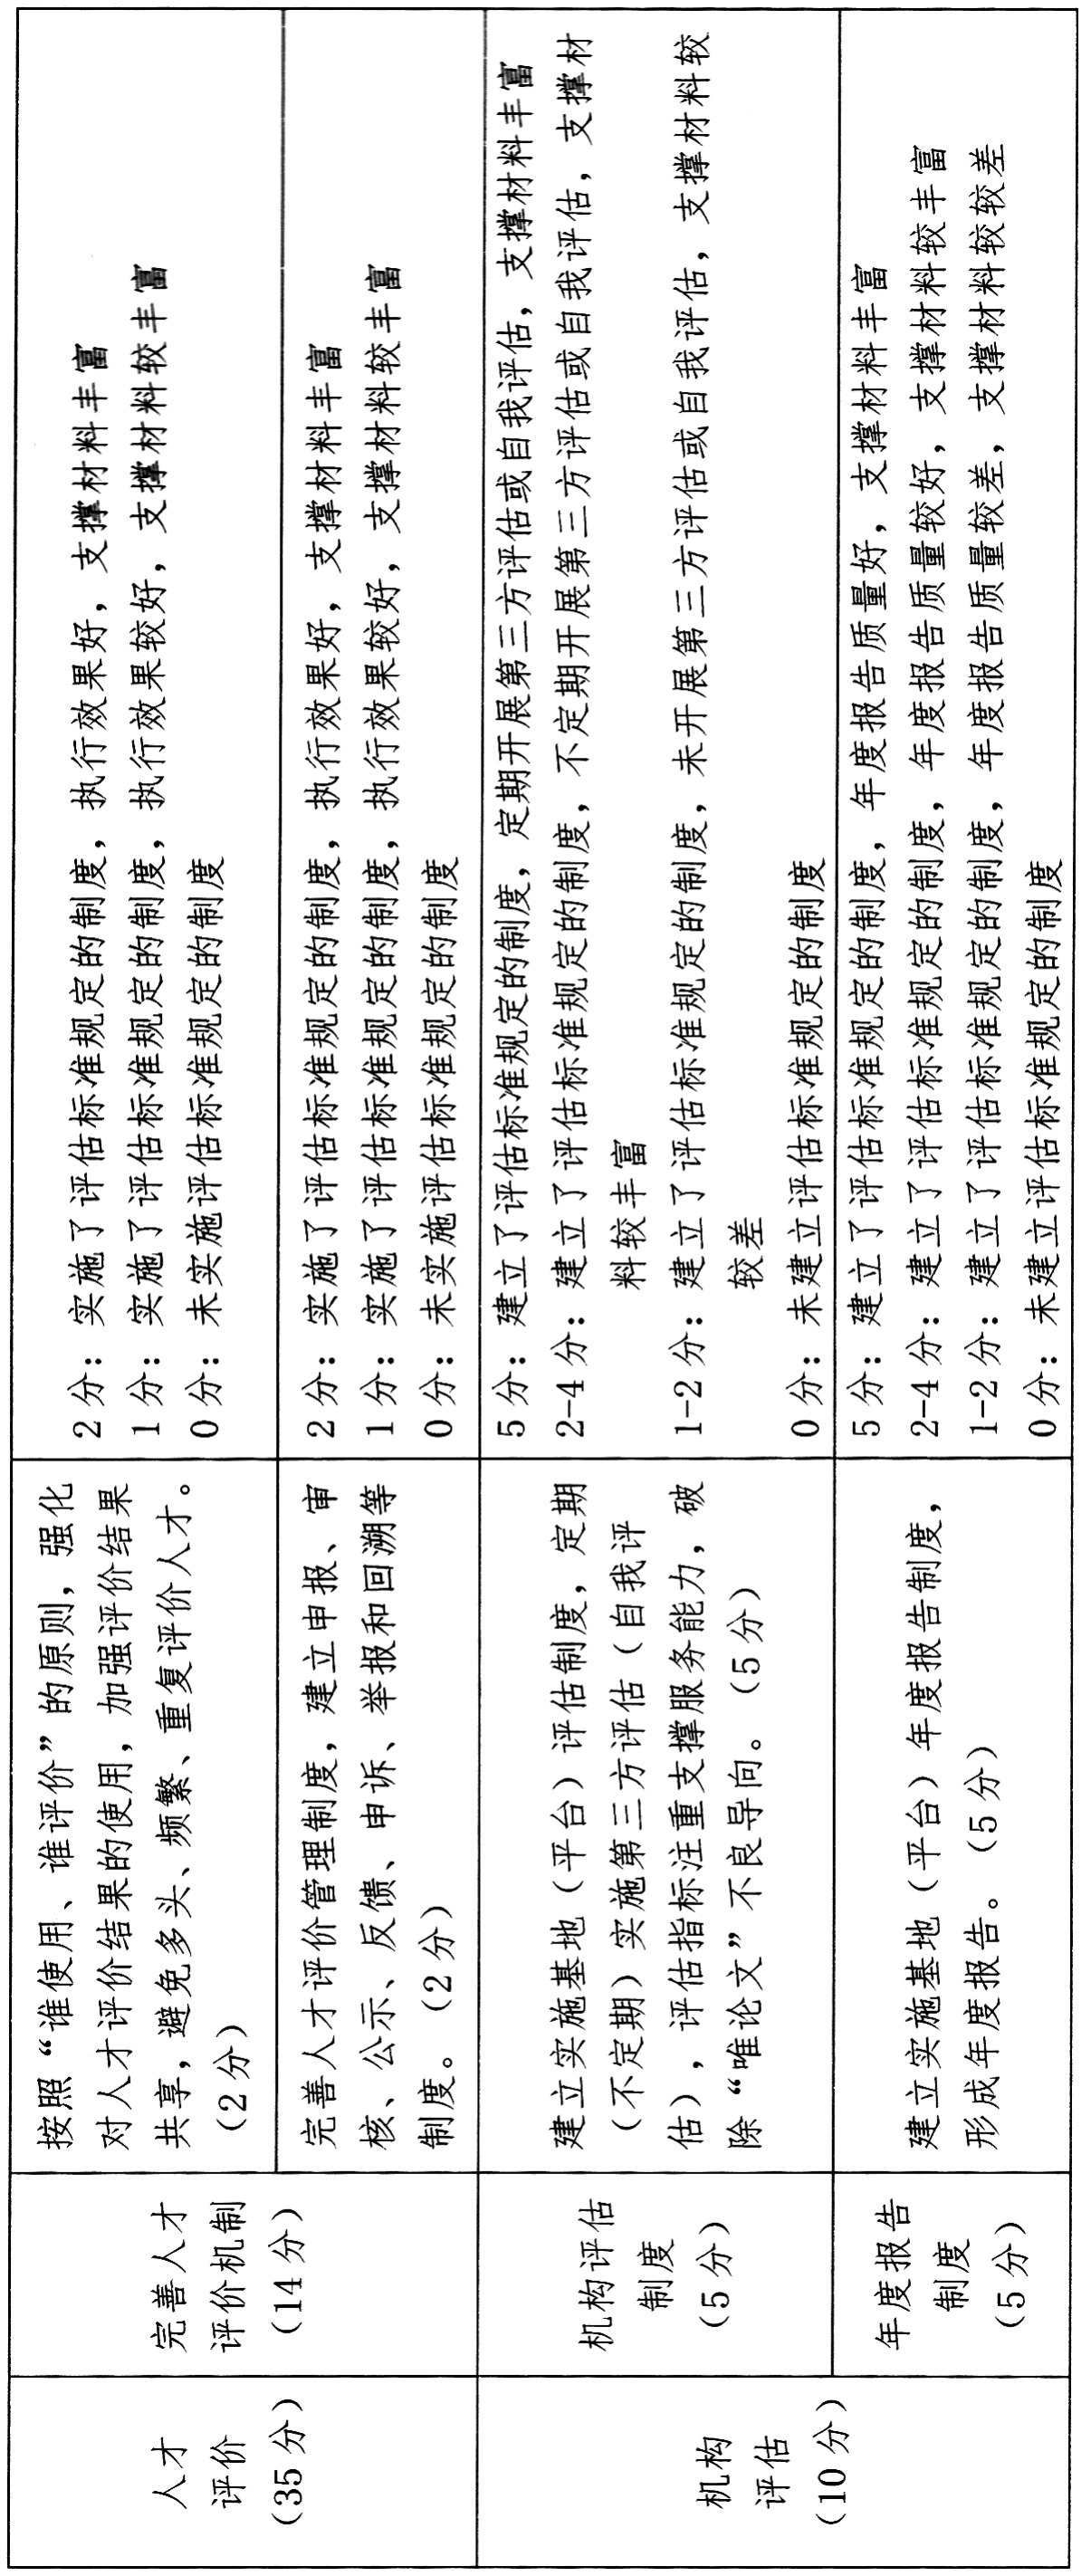 人才
评价
（35 分）
完善人才
评价机制
（14 分）
按照“谁使用、谁评价”的原则，强化
对人才评价结果的使用，加强评价结果
共享，避免多头、频繁、重复评价人才。
（2 分）
2 分：实施了评估标准规定的制度，执行效果好，支撑材料丰富
1 分：实施了评估标准规定的制度，执行效果较好，支撑材料较丰富
0 分：未实施评估标准规定的制度
完善人才评价管理制度，建立申报、审
核、公示、反馈、申诉、举报和回溯等
制度。（2 分）
2 分：实施了评估标准规定的制度，执行效果好，支撑材料丰富
1 分：实施了评估标准规定的制度，执行效果较好，支撑材料较丰富
0 分：未实施评估标准规定的制度
机构
评估
（10 分）
机构评估
制度
（5 分）
建立实施基地（平台）评估制度，定期
（不定期）实施第三方评估（自我评
估），评估指标注重支撑服务能力，破
除“唯论文”不良导向。（5 分）
5 分：建立了评估标准规定的制度，定期开展第三方评估或自我评估，支撑材料丰富
2-4 分：建立了评估标准规定的制度，不定期开展第三方评估或自我评估，支撑材
料较丰富
1-2 分：建立了评估标准规定的制度，未开展第三方评估或自我评估，支撑材料较
较差
0 分：未建立评估标准规定的制度
年度报告
制度
（5 分）
建立实施基地（平台）年度报告制度，
形成年度报告。（5 分）
5 分：建立了评估标准规定的制度，年度报告质量好，支撑材料丰富
2-4 分：建立了评估标准规定的制度，年度报告质量较好，支撑材料较丰富
1-2 分：建立了评估标准规定的制度，年度报告质量较差，支撑材料较较差
0 分：未建立评估标准规定的制度